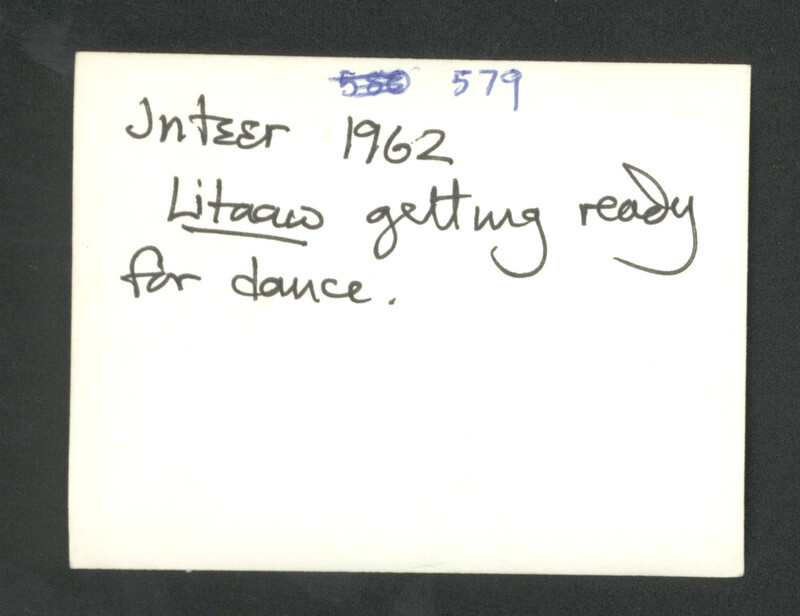 579
Intɛɛr 1962
Litaaw getting ready
for dance.